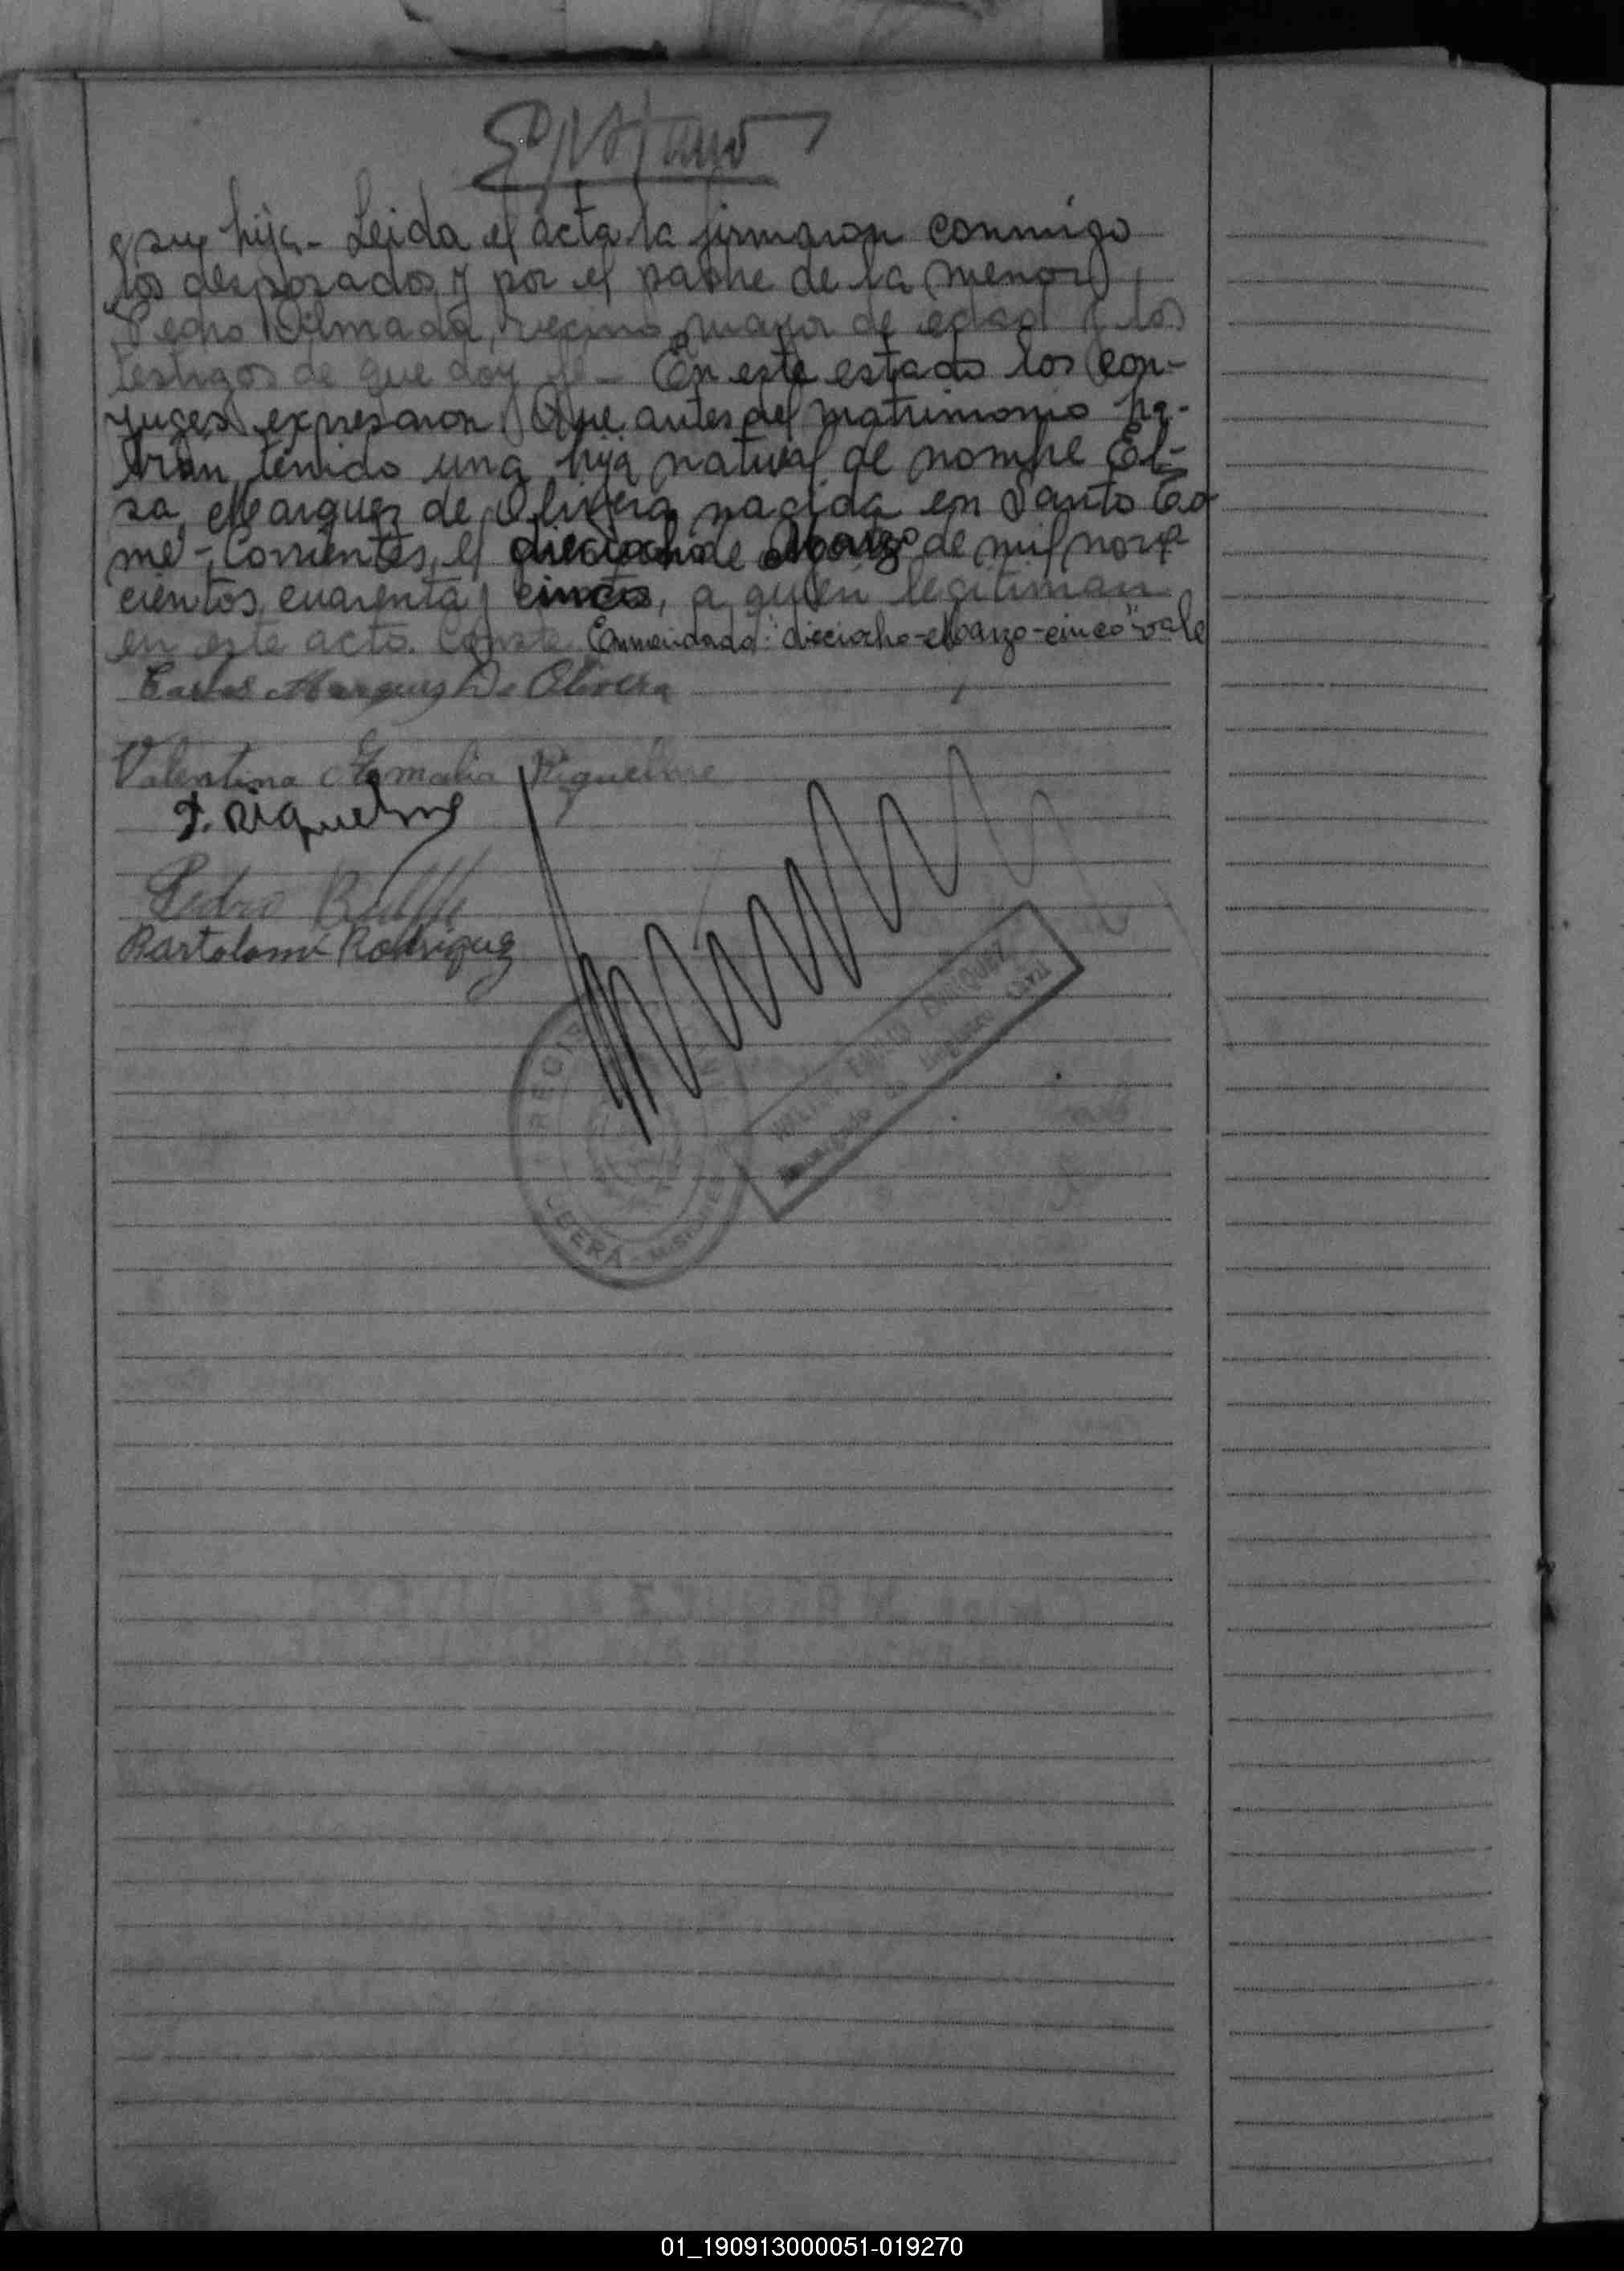 su hija.- Leida el acta la firmaron conmigo
los desposados y por el padre de la menor,
Pedro Almada, vecino, mayor de edad y los
testigos de que doy fe.- En este estado los con-
yuges expresaron: Que antes del matrimonio ha-
bian tenido una hija natural de nombre El-
sa Marquez de Olivera nacida en Santo To
mé - Corrientes, el dieciocho de Marzo de mil nove
cientos cuarenta y cinco, a quien legitiman
en este acto. Conste Enmendado: "dieciocho-Marzo-cinco" vale
Carlos Marques De Olivera
Valentina Riquelme
Riquelme
Pedro
Bartolomé Rodriguez
ENRIQUEZ
Encargado de Registro Civil
MISIONES
01_190913000051-019270